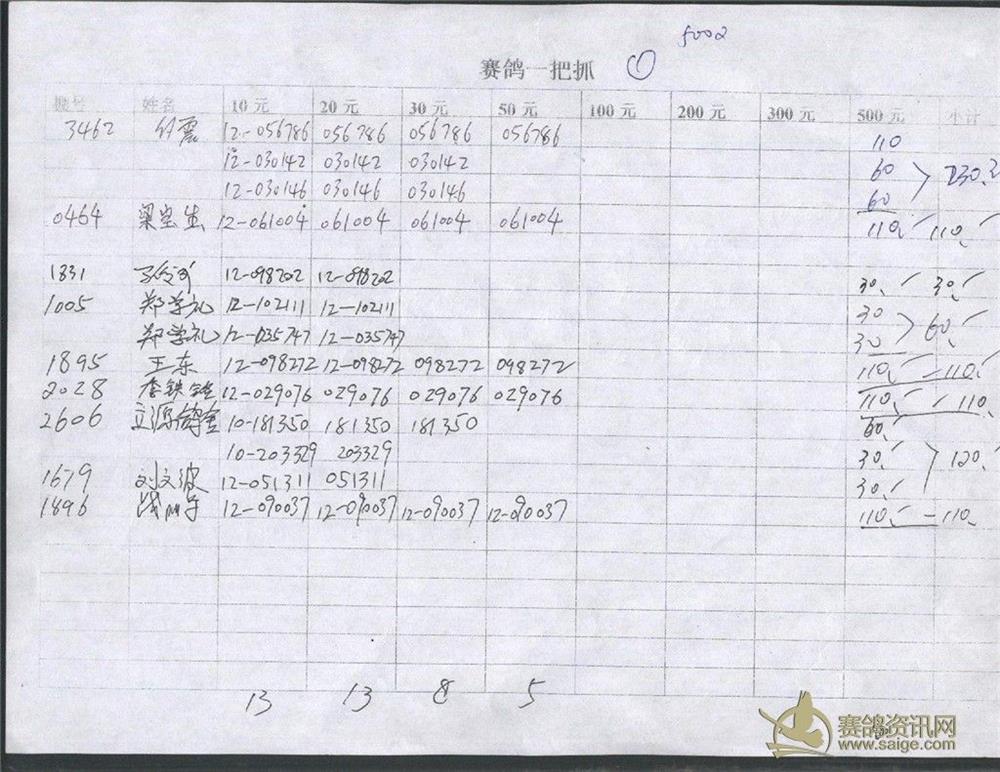 5002
赛鸽一把抓 ①
棚号 姓名 10元 20元 30元 50元 100元 200元 300元 500元 小计
3462 付震 12-056786 056786 056786 056786 110
12-030142 030142 030142 60 230.
12-030146 030146 030146 60
0464 梁宝生 12-061004 061004 061004 061004 110. 110.
1831 12-098202 12-098202 30. 30.
1005 郑学礼 12-102111 12-102111 30 60.
郑学礼 12-035747 12-035747 30
1895 王东 12-098272 12-098272 098272 098272 110. 110.
2028 12-029076 029076 029076 029076 110. 110.
2606 立源鸽舍 10-181350 181350 181350 60.
10-203329 203329 30. 120.
1679 刘文波 12-051311 051311 30.
1896 12-090037 12-090037 12-090037 12-090037 110. 110.
13 13 8 5
赛鸽资讯网
www.saige.com